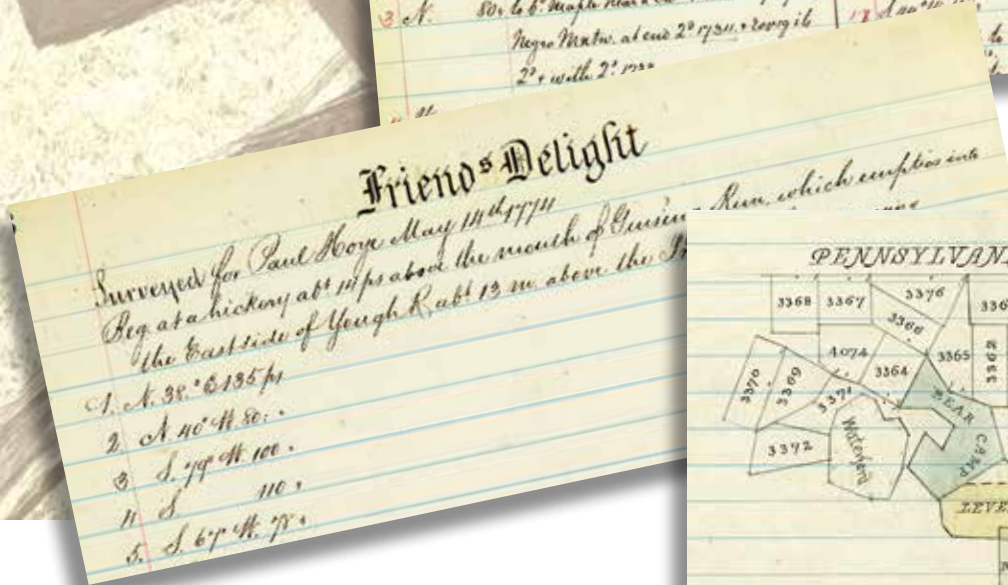 3 N. 80. to 6. Maple
Negro Mntn. at end 2º 1734.
2º & with 2º
Friends Delight
Surveyed for Paul Hoye May 14th 1774
Beg. at a hickory abt. 14 ps above the mouth of Run, which empties into
the East side of Yough R. abt 13 m. above the
1. N. 38.º E 135 ps
2 N. 40º W. 80.
3 S. 79º W. 100.
4 S 110.
5. S. 67º W. 78.
PENNSYLVANI
3368 3367 3376 336
3366
4074 3365 3362
3364
3370 3369 3371
BEAR CAMP
3372 Waterford
LEVE